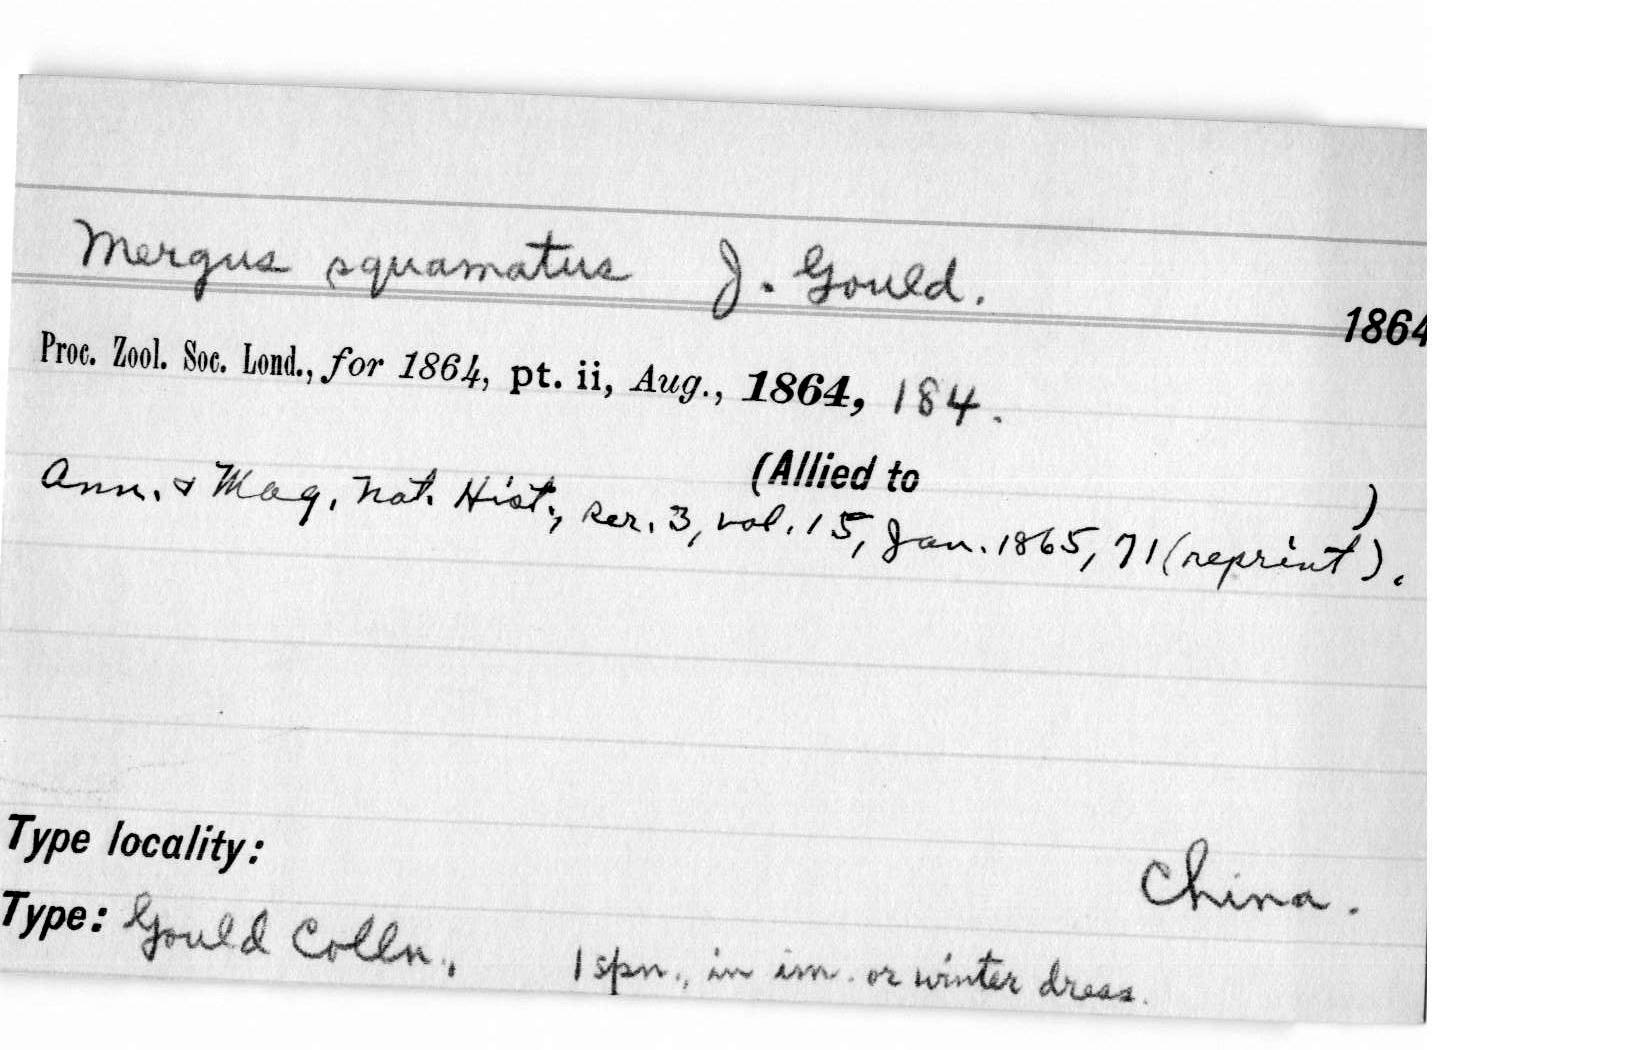 Mergus squamatus J. Gould.
1864
Proc. Zool. Soc. Lond., for 1864, pt. ii, Aug., 1864, 184.
(Allied to )
Ann. & Mag. Nat. Hist., ser. 3, vol. 15, Jan. 1865, 71 (reprint).
Type locality: China.
Type: Gould Colln., 1 spn., in im. or winter dress.